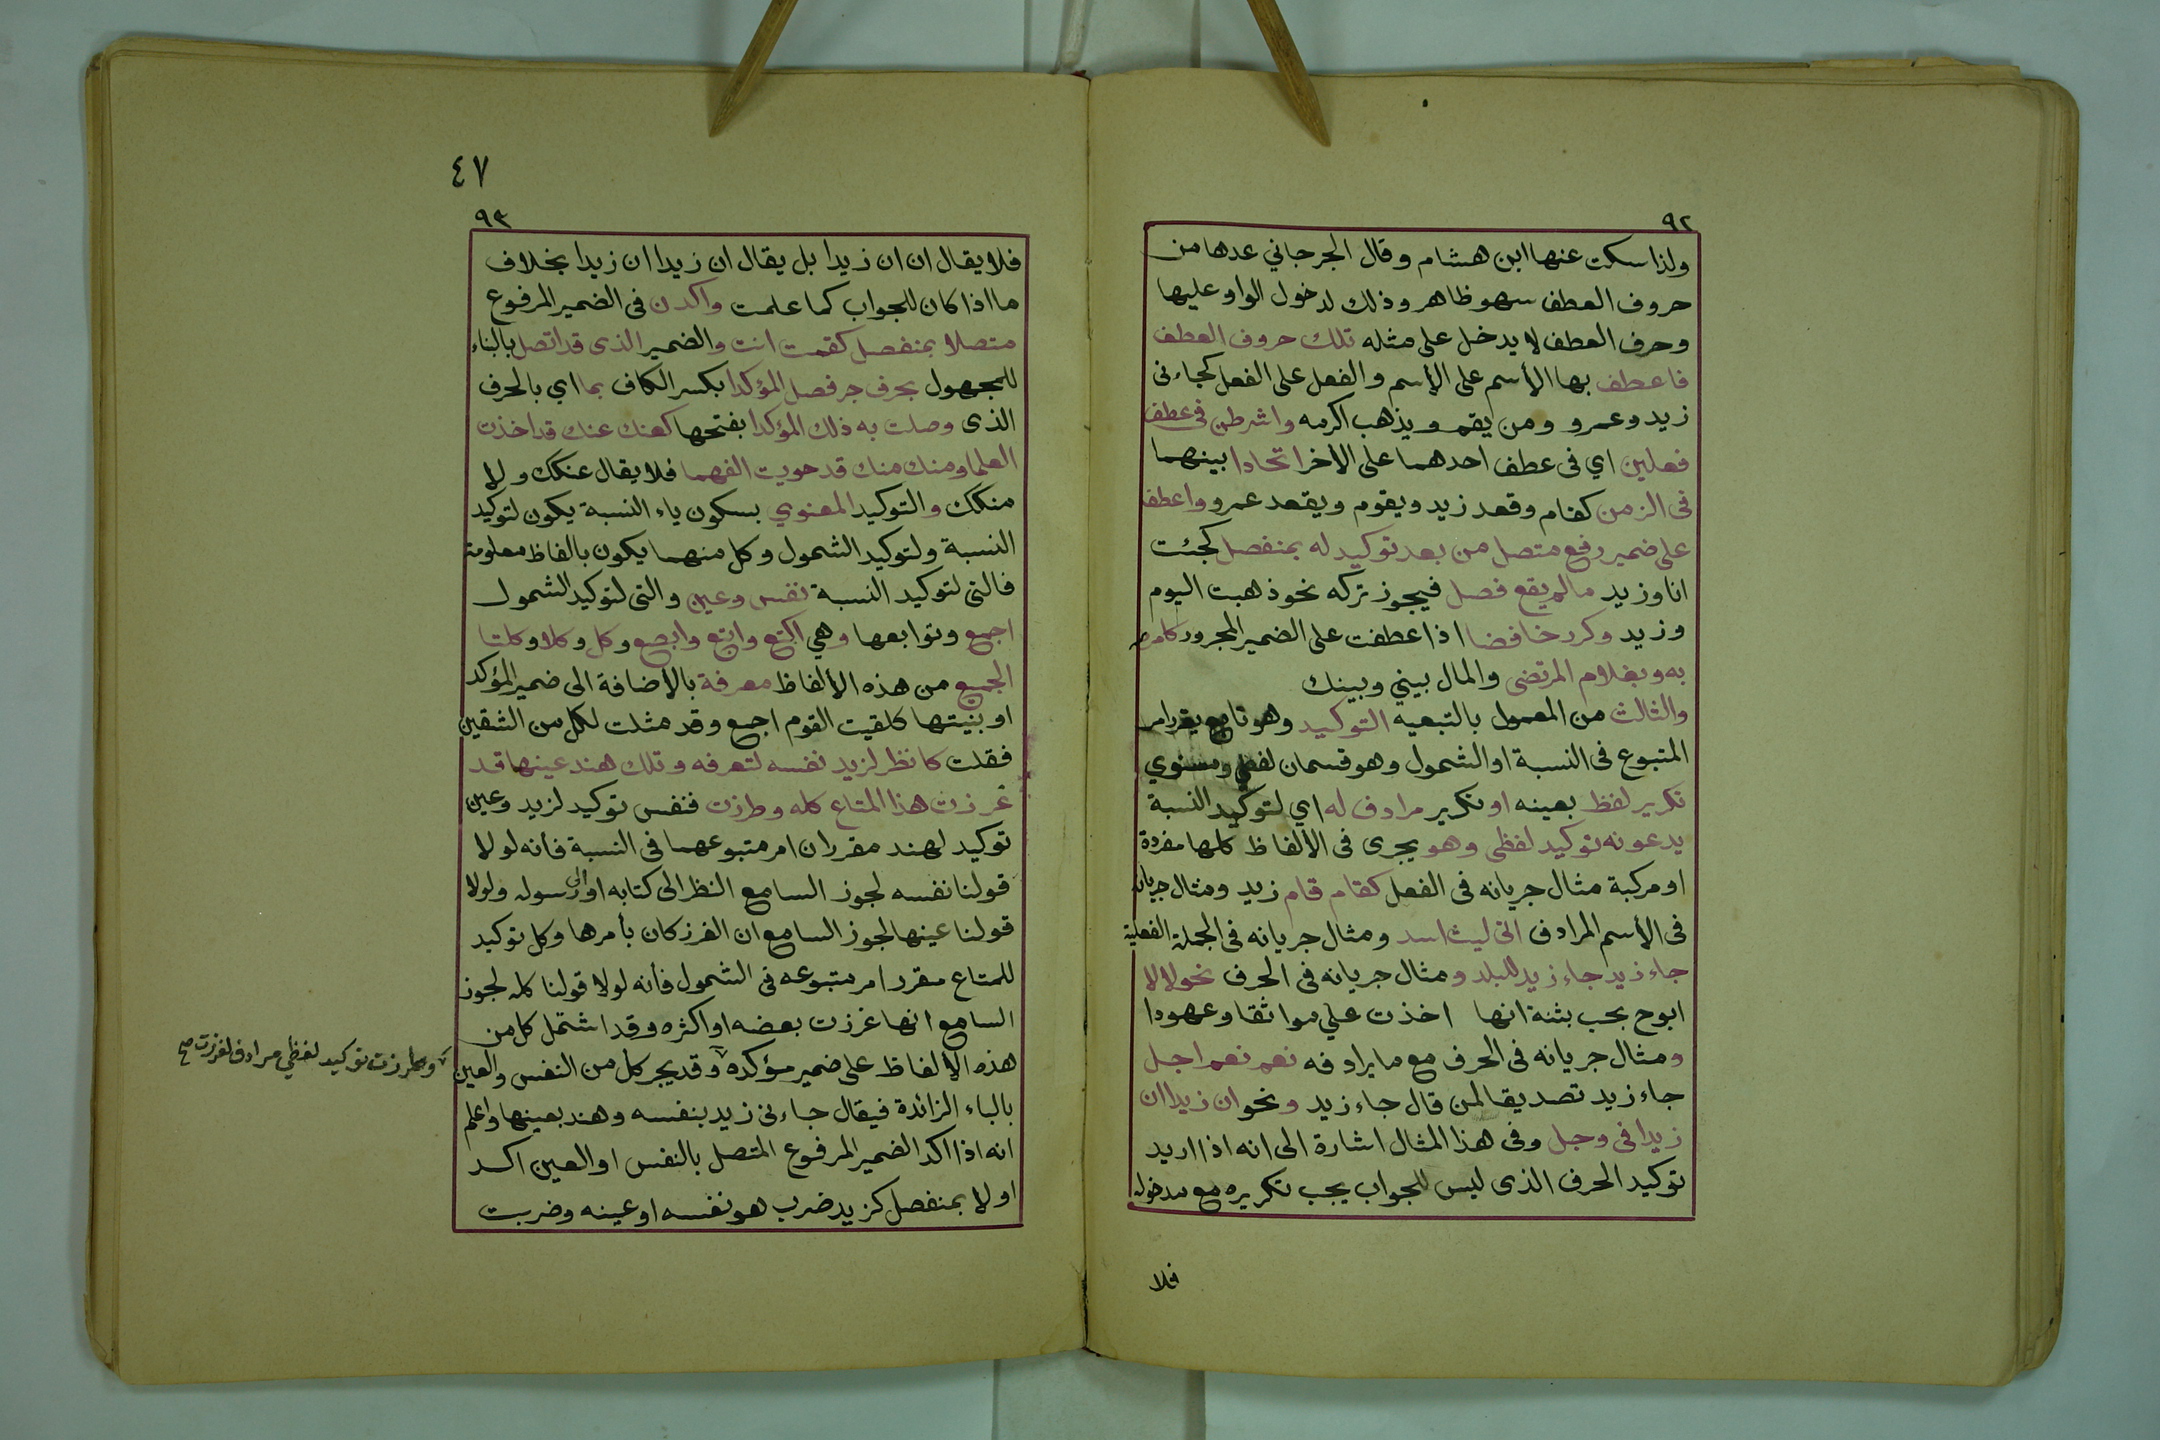 ٩٢
ولذا سكت عنها ابن هشام وقال الجرجاني عدها من
حروف العطف سهو ظاهر وذلك لدخول الواو عليها
وحرف العطف لا يدخل على مثله تلك حروف العطف
فاعطف بها الأسم على الأسم والفعل على الفعل كجاءنى
زيد وعمرو ومن يقم ويذهب اكرمه واشرطن فى عطف
فعلين اي فى عطف احدهما على الاخر اتحادا بينهما
فى الزمن كقام وقعد زيد ويقوم ويقعد عمرو واعطف
على ضمير رفع متصل من بعد توكيد له بمنفصل كجئت
انا وزيد مالم يقع فصل فيجوز تركه نحو ذهبت اليوم
وزيد وكرر خافضا اذا عطفت على الضمير المجرور كامرر
به وبغلام المرتضى والمال بيني وبينك
والثالث من المعمول بالتبعيه التوكيد وهو تابع يقرر امر
المتبوع فى النسبة او الشمول وهو قسمان لفظي ومعنوي
تكرير لفظ بعينه او تكرير مرادف له اي لتوكيد النسبة
يدعونه توكيد لفظى وهو يجرى فى الألفاظ كلها مفردة
او مركبة مثال جريانه فى الفعل كقام قام زيد ومثال جريانه
فى الأسم المرادف اتى ليث اسد ومثال جريانه فى الجملة الفعلية
جاء زيد جاء زيد للبلد ومثال جريانه فى الحرف نحو لا لا
ابوح بحب بثنة انها اخذت علي مواثقا وعهودا
ومثال جريانه فى الحرف مع ما يرادفه نعم نعم اجل
جاء زيد تصديقا لمن قال جاء زيد ونحو ان زيدا ان
زيدا فى وجل وفى هذا المثال اشارة الى انه اذا اريد
توكيد الحرف الذى ليس للجواب يجب تكريره مع مدخوله
فلا
٤٧
٩٣
فلا يقال ان ان زيدا بل يقال ان زيدا ان زيدا بخلاف
ما اذا كان للجواب كما علمت واكدن فى الضمير المرفوع
متصلا بمنفصل كقمت انت والضمير الذى قد اتصل بالبناء
للمجهول بحرف جر فصل المؤكدا بكسر الكاف بما اي بالحرف
الذى وصلت به ذلك المؤكدا بفتحها كعنك عنك قد اخذت
العلما ومنك منك قد حويت الفهما فلا يقال عنكك ولا
منكك والتوكيد المعنوي بسكون ياء النسبة يكون لتوكيد
النسبة ولتوكيد الشمول وكل منهما يكون بالفاظ معلومة
فالتى لتوكيد النسبة نفس وعين والتى لتوكيد الشمول
اجمع وتوابعها وهي اكتع واتع وابصع وكل وكلا وكلتا
الجميع من هذه الألفاظ معرفة بالأضافة الى ضمير المؤكد
او بنيتها كلقيت القوم اجمع وقد مثلت لكل من الشقين
فقلت كانظر لزيد نفسه لتعرفه وتلك هند عينها قد
غرزت هذا المتاع كله وطرزت فنفس توكيد لزيد وعين
توكيد لهند مقرران امر متبوعهما فى النسبة فأنه لولا
قولنا نفسه لجوز السامع النظر الى كتابه او الى رسوله ولولا
قولنا عينها لجوز السامع ان الغرز كان بأمرها وكل توكيد
للمتاع مقرر امر متبوعه فى الشمول فأنه لولا قولنا كله لجوز
السامع انها غرزت بعضه او اكثره وقد اشتمل كل من
هذه الألفاظ على ضمير مؤكده وقد يجر كل من النفس والعين
بالباء الزائدة فيقال جاءنى زيد بنفسه وهند بعينها واعلم
انه اذا اكد الضمير المرفوع المتصل بالنفس او العين اكد
اولا بمنفصل كزيد ضرب هو نفسه او عينه وضربت
وطرزت توكيد لفظي مرادف لغرزت صح